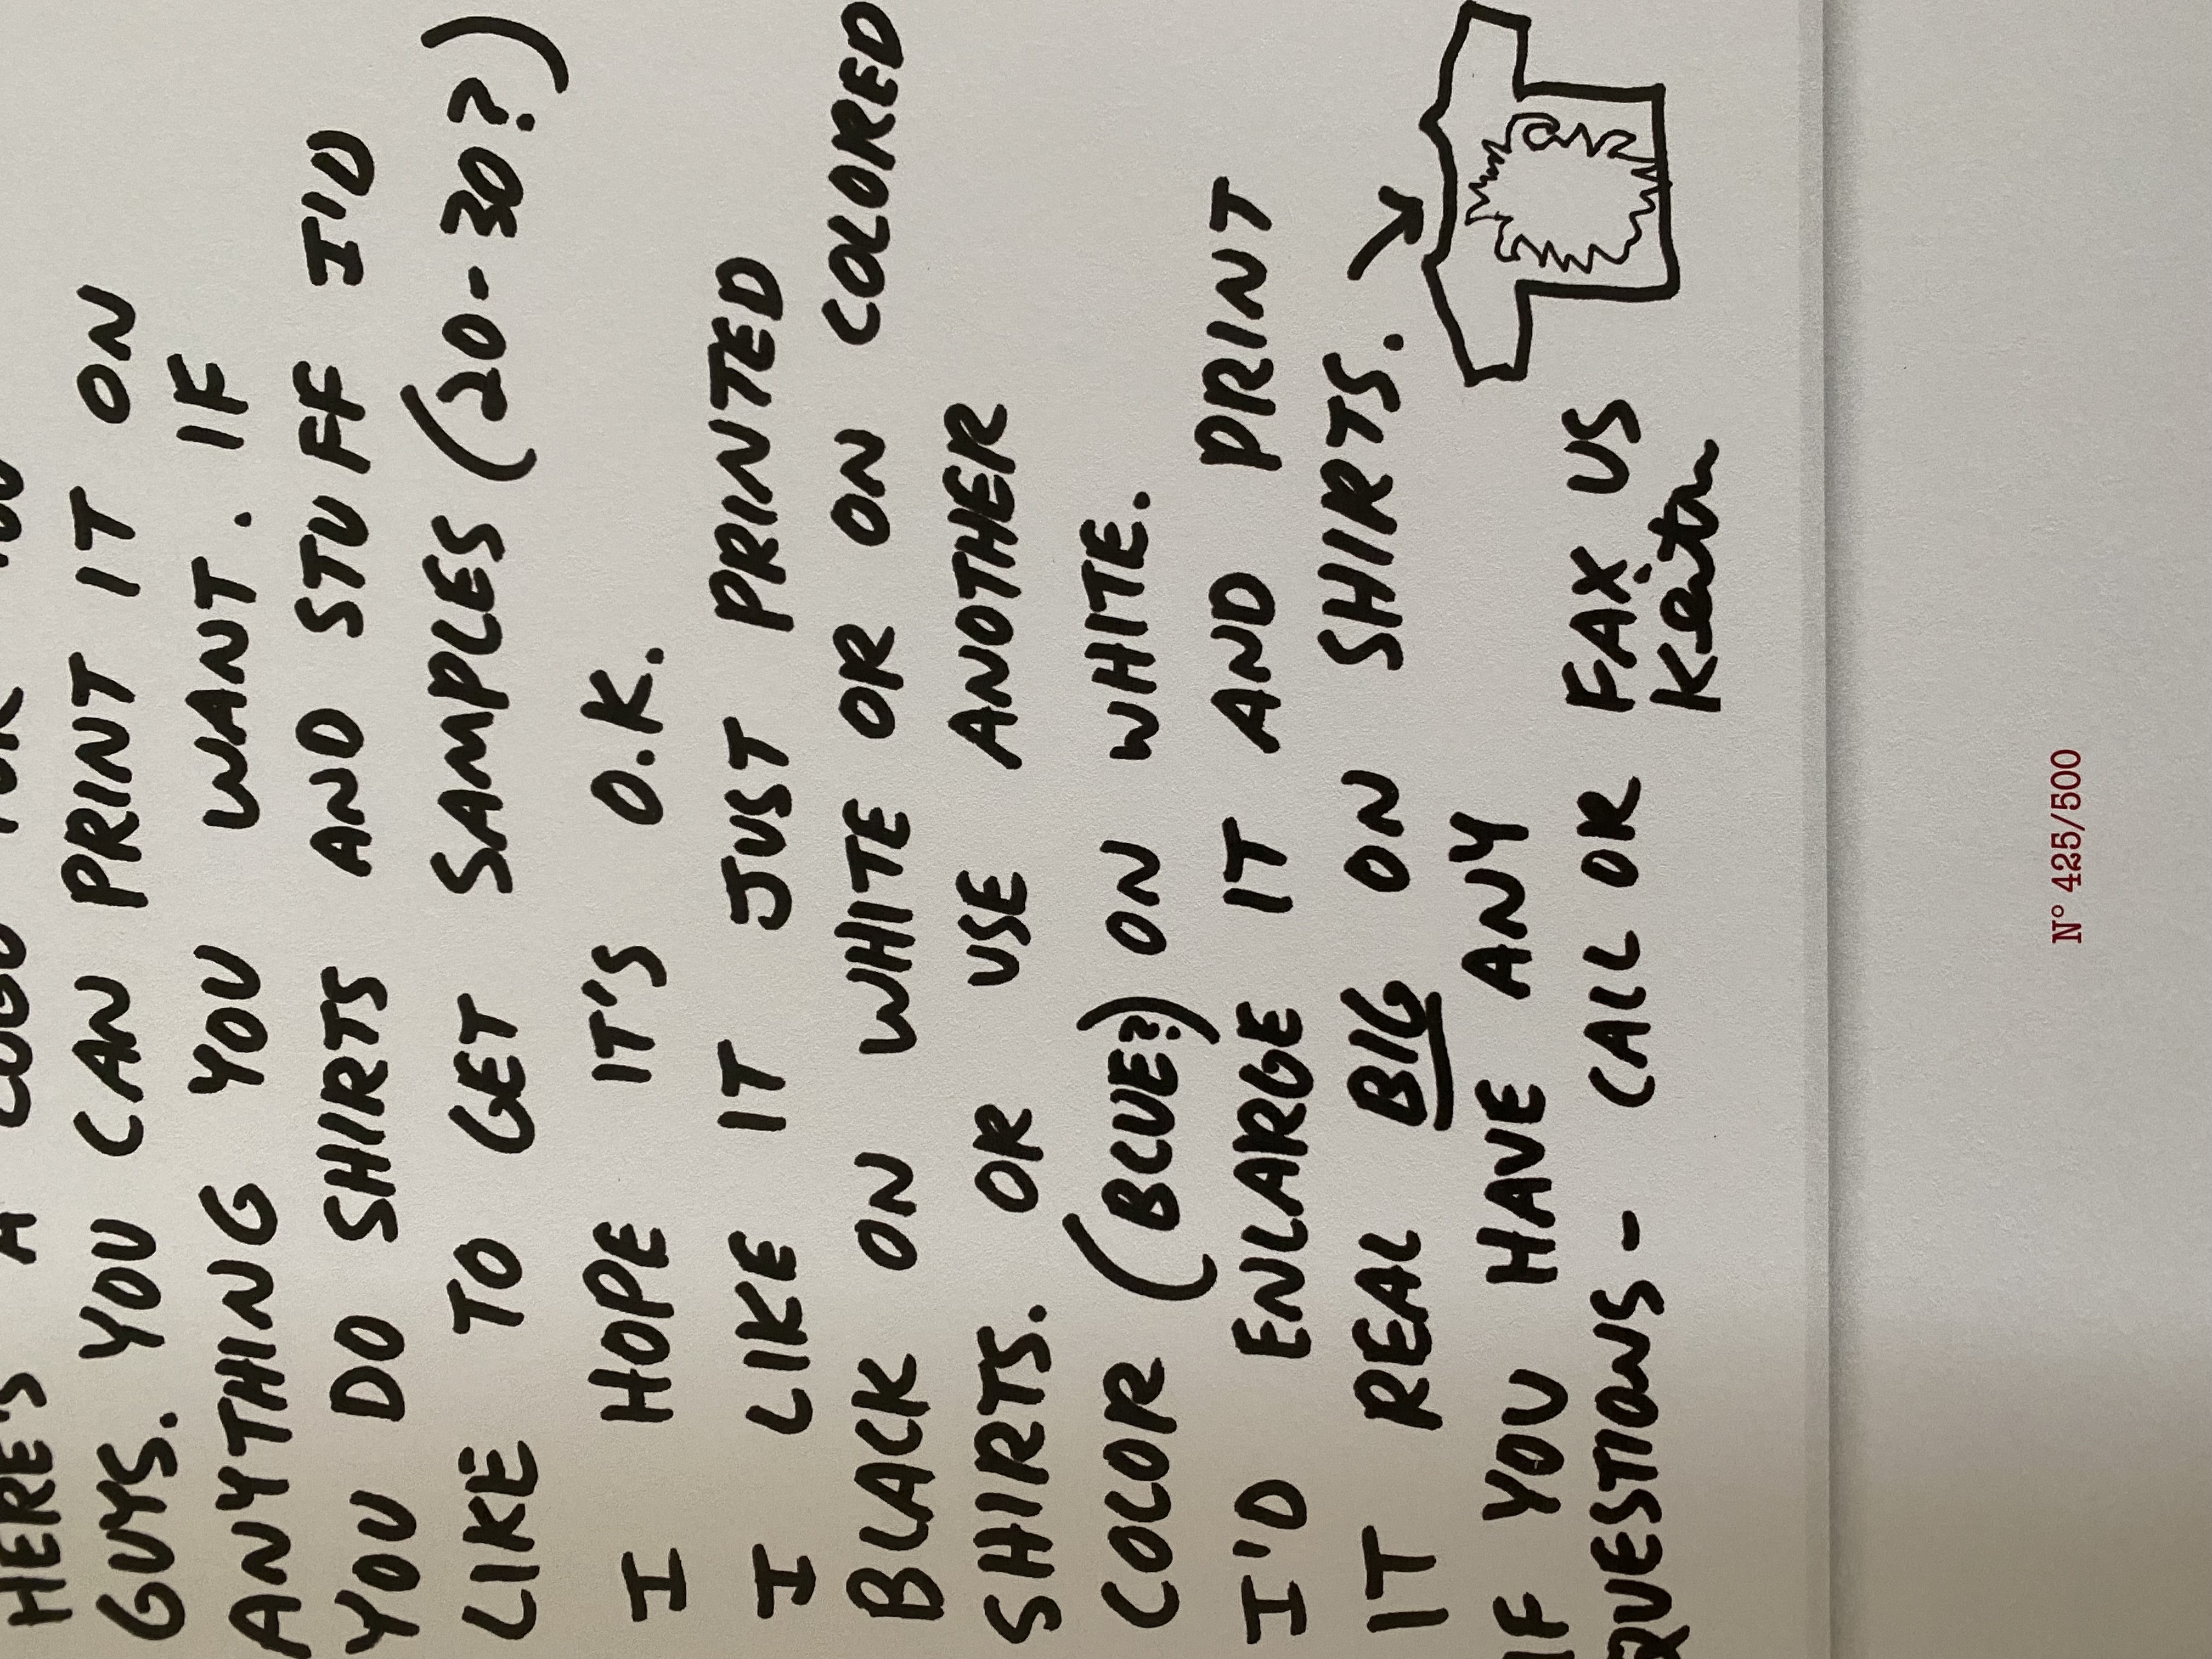 HERE'S A LOGO FOR YOU
GUYS. YOU CAN PRINT IT ON
ANYTHING YOU WANT. IF
YOU DO SHIRTS AND STUFF I'D
LIKE TO GET SAMPLES (20-30?)
I HOPE IT'S O.K.
I LIKE IT JUST PRINTED
BLACK ON WHITE OR ON COLORED
SHIRTS. OR USE ANOTHER
COLOR (BLUE?) ON WHITE.
I'D ENLARGE IT AND PRINT
IT REAL BIG ON SHIRTS.
IF YOU HAVE ANY
QUESTIONS- CALL OR FAX US
Keith
N° 425/500